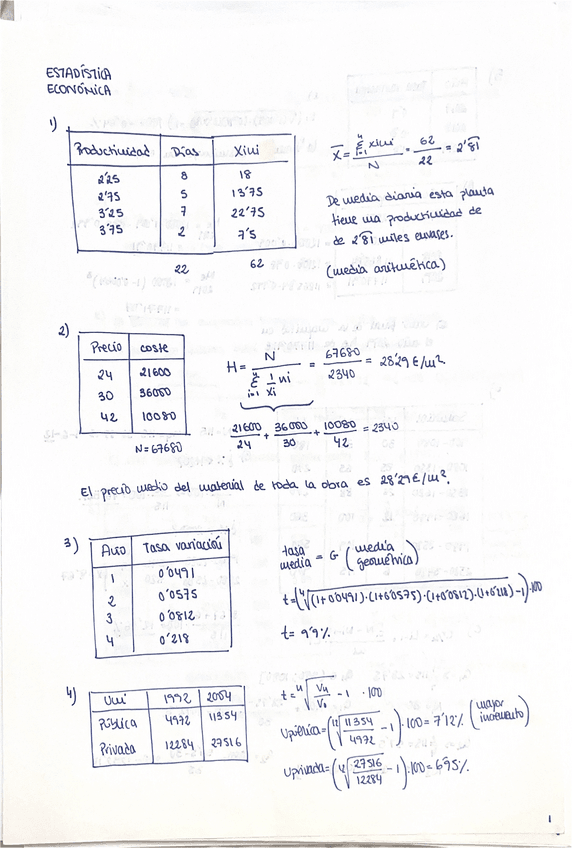 ESTADÍSTICA
ECONÓMICA
1)
Productividad Días Xini
2'25 8 18
2'75 5 13'75
3'25 7 22'75
3'75 2 7'5
22 62
X̄ = Σ i=1 n xini / N = 62 / 22 = 2'81
De media diaria esta planta
tiene una productividad de
de 2'81 miles envases.
(media aritmética)
2)
Precio coste
24 21600
30 36000
42 10080
N=67680
H = N / Σ i=1 n 1/xi ni = 67680 / 2340 = 28'29 €/m².
21600/24 + 36000/30 + 10080/42 = 2340
El precio medio del material de toda la obra es 28'29€/m².
3)
Año Tasa variación
1 0'0491
2 0'0575
3 0'0812
4 0'218
tasa media = G (media geométrica)
t=(⁴√(1+0'0491)·(1+0'0575)·(1+0'0812)·(1+0'218) -1)·100
t= 9'9%
4)
Uni 1992 2004
Pública 4972 11354
Privada 12284 27516
t= ⁿ√Vn/V0 - 1 · 100
Upública=(¹²√11354/4972 - 1)·100 = 7'12% (mayor incremento)
Uprivada=(¹²√27516/12284 - 1)·100 = 6'95%
1